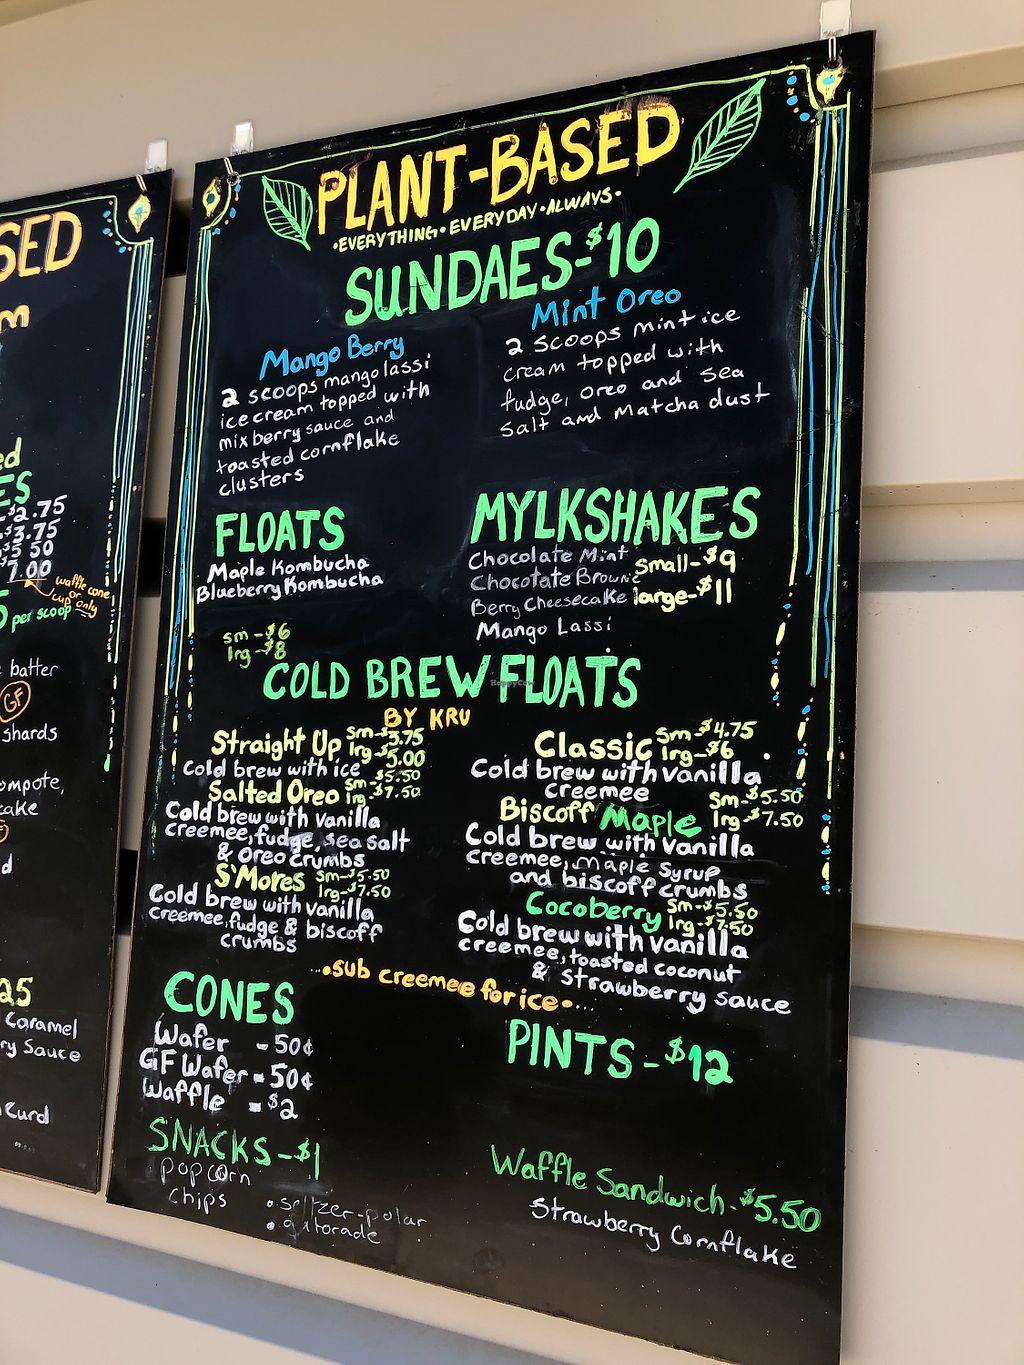 SED
m
ed
ES
$2.75
$3.75
$5.50
7.00
waffle cone
or
cup only
5 per scoop
batter
GF
shards
ompote,
cake
d
25
Caramel
ry Sauce
Curd
PLANT-BASED
•EVERYTHING•EVERYDAY•ALWAYS•
SUNDAES-$10
Mango Berry
2 scoops mango lassi
ice cream topped with
mix berry sauce and
toasted cornflake
clusters
Mint Oreo
2 scoops mint ice
cream topped with
fudge, oreo and sea
salt and matcha dust
FLOATS
Maple Kombucha
Blueberry Kombucha
sm-$6
lrg-$8
MYLKSHAKES
Chocolate Mint
Chocolate Brownie
Berry Cheesecake
Mango Lassi
Small-$9
large-$11
COLD BREW FLOATS
BY KRU
Straight Up Sm-$3.75
lrg-$5.00
Cold brew with ice
Salted Oreo Sm-$5.50
lrg-$7.50
Cold brew with vanilla
creemee, fudge, sea salt
& oreo crumbs
S'Mores Sm-$5.50
lrg-$7.50
Cold brew with vanilla
creemee, fudge & biscoff
crumbs
Classic Sm-$4.75
lrg-$6
Cold brew with vanilla
creemee
Biscoff Maple Sm-$5.50
lrg-$7.50
Cold brew with vanilla
creemee, maple syrup
and biscoff crumbs
Cocoberry Sm-$5.50
lrg-$7.50
Cold brew with vanilla
creemee, toasted coconut
& strawberry sauce
...•sub creemee for ice•...
CONES
Wafer - 50¢
GF Wafer - 50¢
Waffle - $2
SNACKS-$1
popcorn
chips
•seltzer-polar
•gatorade
PINTS-$12
Waffle Sandwich-$5.50
Strawberry Cornflake
HappyCow